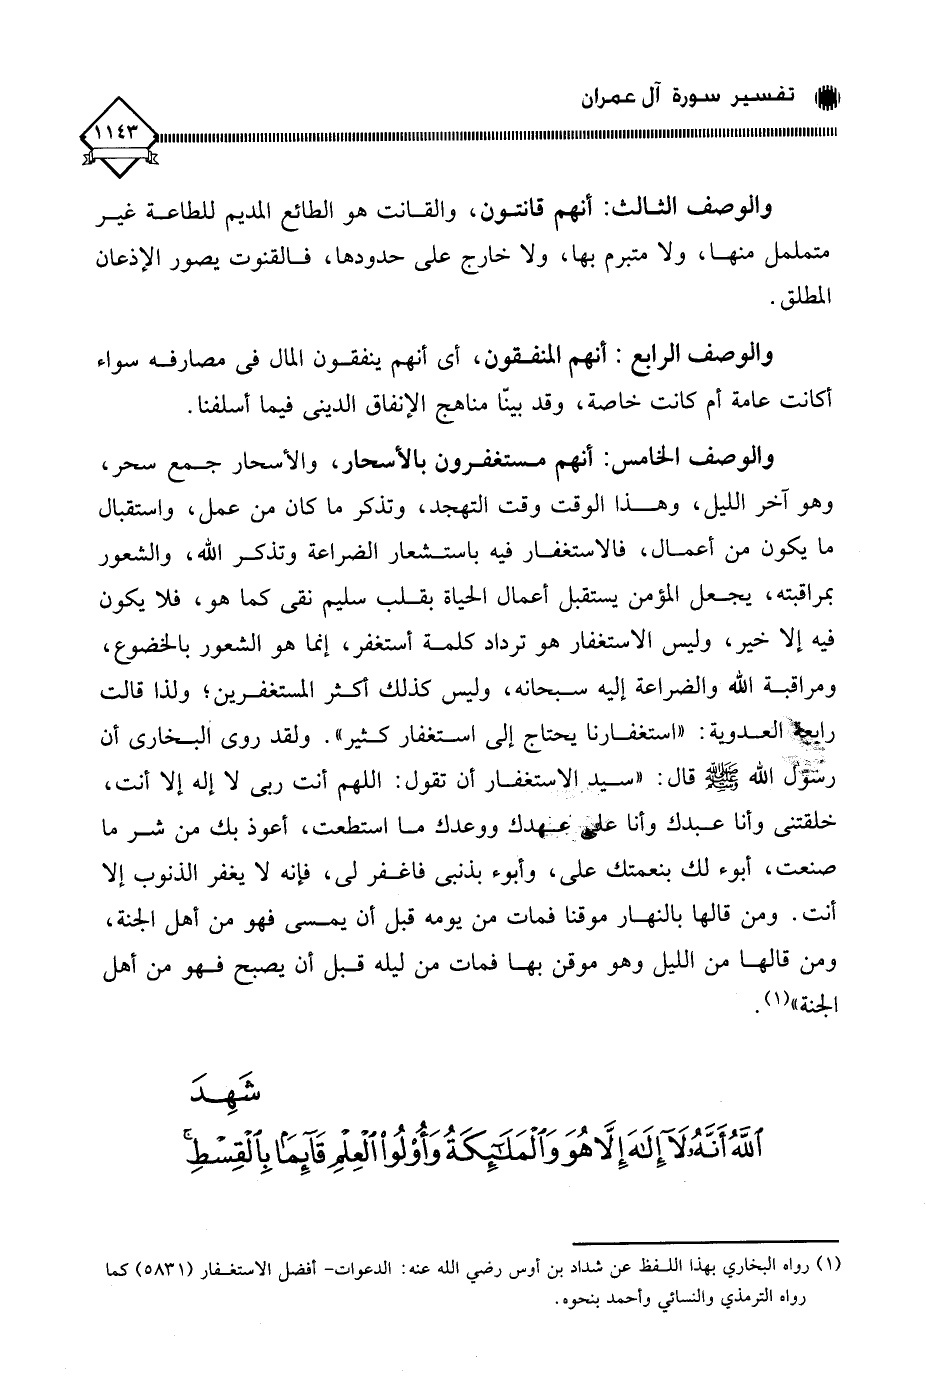 تفسير سورة آل عمران
١١٤٣
والوصف الثالث: أنهم قانتون، والقانت هو الطائع المديم للطاعة غير
متململ منها، ولا متبرم بها، ولا خارج على حدودها، فالقنوت يصور الإذعان
المطلق.
والوصف الرابع: أنهم المنفقون، أى أنهم ينفقون المال فى مصارفه سواء
أكانت عامة أم كانت خاصة، وقد بينّا مناهج الإنفاق الدينى فيما أسلفنا.
والوصف الخامس: أنهم مستغفرون بالأسحار، والأسحار جمع سحر،
وهو آخر الليل، وهذا الوقت وقت التهجد، وتذكر ما كان من عمل، واستقبال
ما يكون من أعمال، فالاستغفار فيه باستشعار الضراعة وتذكر الله، والشعور
بمراقبته، يجعل المؤمن يستقبل أعمال الحياة بقلب سليم نقى كما هو، فلا يكون
فيه إلا خير، وليس الاستغفار هو ترداد كلمة أستغفر، إنما هو الشعور بالخضوع،
ومراقبة الله والضراعة إليه سبحانه، وليس كذلك أكثر المستغفرين؛ ولذا قالت
رابعة العدوية: «استغفارنا يحتاج إلى استغفار كثير». ولقد روى البخارى أن
رسول الله ﷺ قال: «سيد الاستغفار أن تقول: اللهم أنت ربى لا إله إلا أنت،
خلقتنى وأنا عبدك وأنا على عهدك ووعدك ما استطعت، أعوذ بك من شر ما
صنعت، أبوء لك بنعمتك على، وأبوء بذنبى فاغفر لى، فإنه لا يغفر الذنوب إلا
أنت. ومن قالها بالنهار موقنا فمات من يومه قبل أن يمسى فهو من أهل الجنة،
ومن قالها من الليل وهو موقن بها فمات من ليله قبل أن يصبح فهو من أهل
الجنة»(١).
شَهِدَ
ٱللَّهُ أَنَّهُۥ لَآ إِلَٰهَ إِلَّا هُوَ وَٱلْمَلَٰٓئِكَةُ وَأُو۟لُوا۟ ٱلْعِلْمِ قَآئِمًۢا بِٱلْقِسْطِ ۚ
(١) رواه البخاري بهذا اللفظ عن شداد بن أوس رضي الله عنه: الدعوات- أفضل الاستغفار (٥٨٣١) كما
رواه الترمذي والنسائي وأحمد بنحوه.